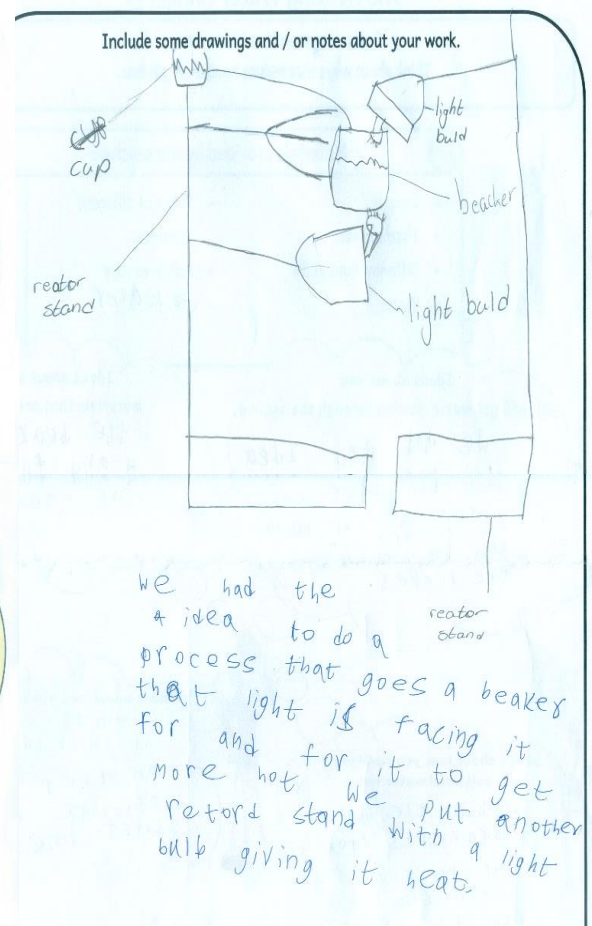 Include some drawings and / or notes about your work.
cup
cup
light
buld
beacker
reator
stand
light buld
reator
stand
we had the
a idea to do a
process that goes a beaker
that light is facing it
for and for it to get
more hot we put another
retord stand with a light
bulb giving it heat.